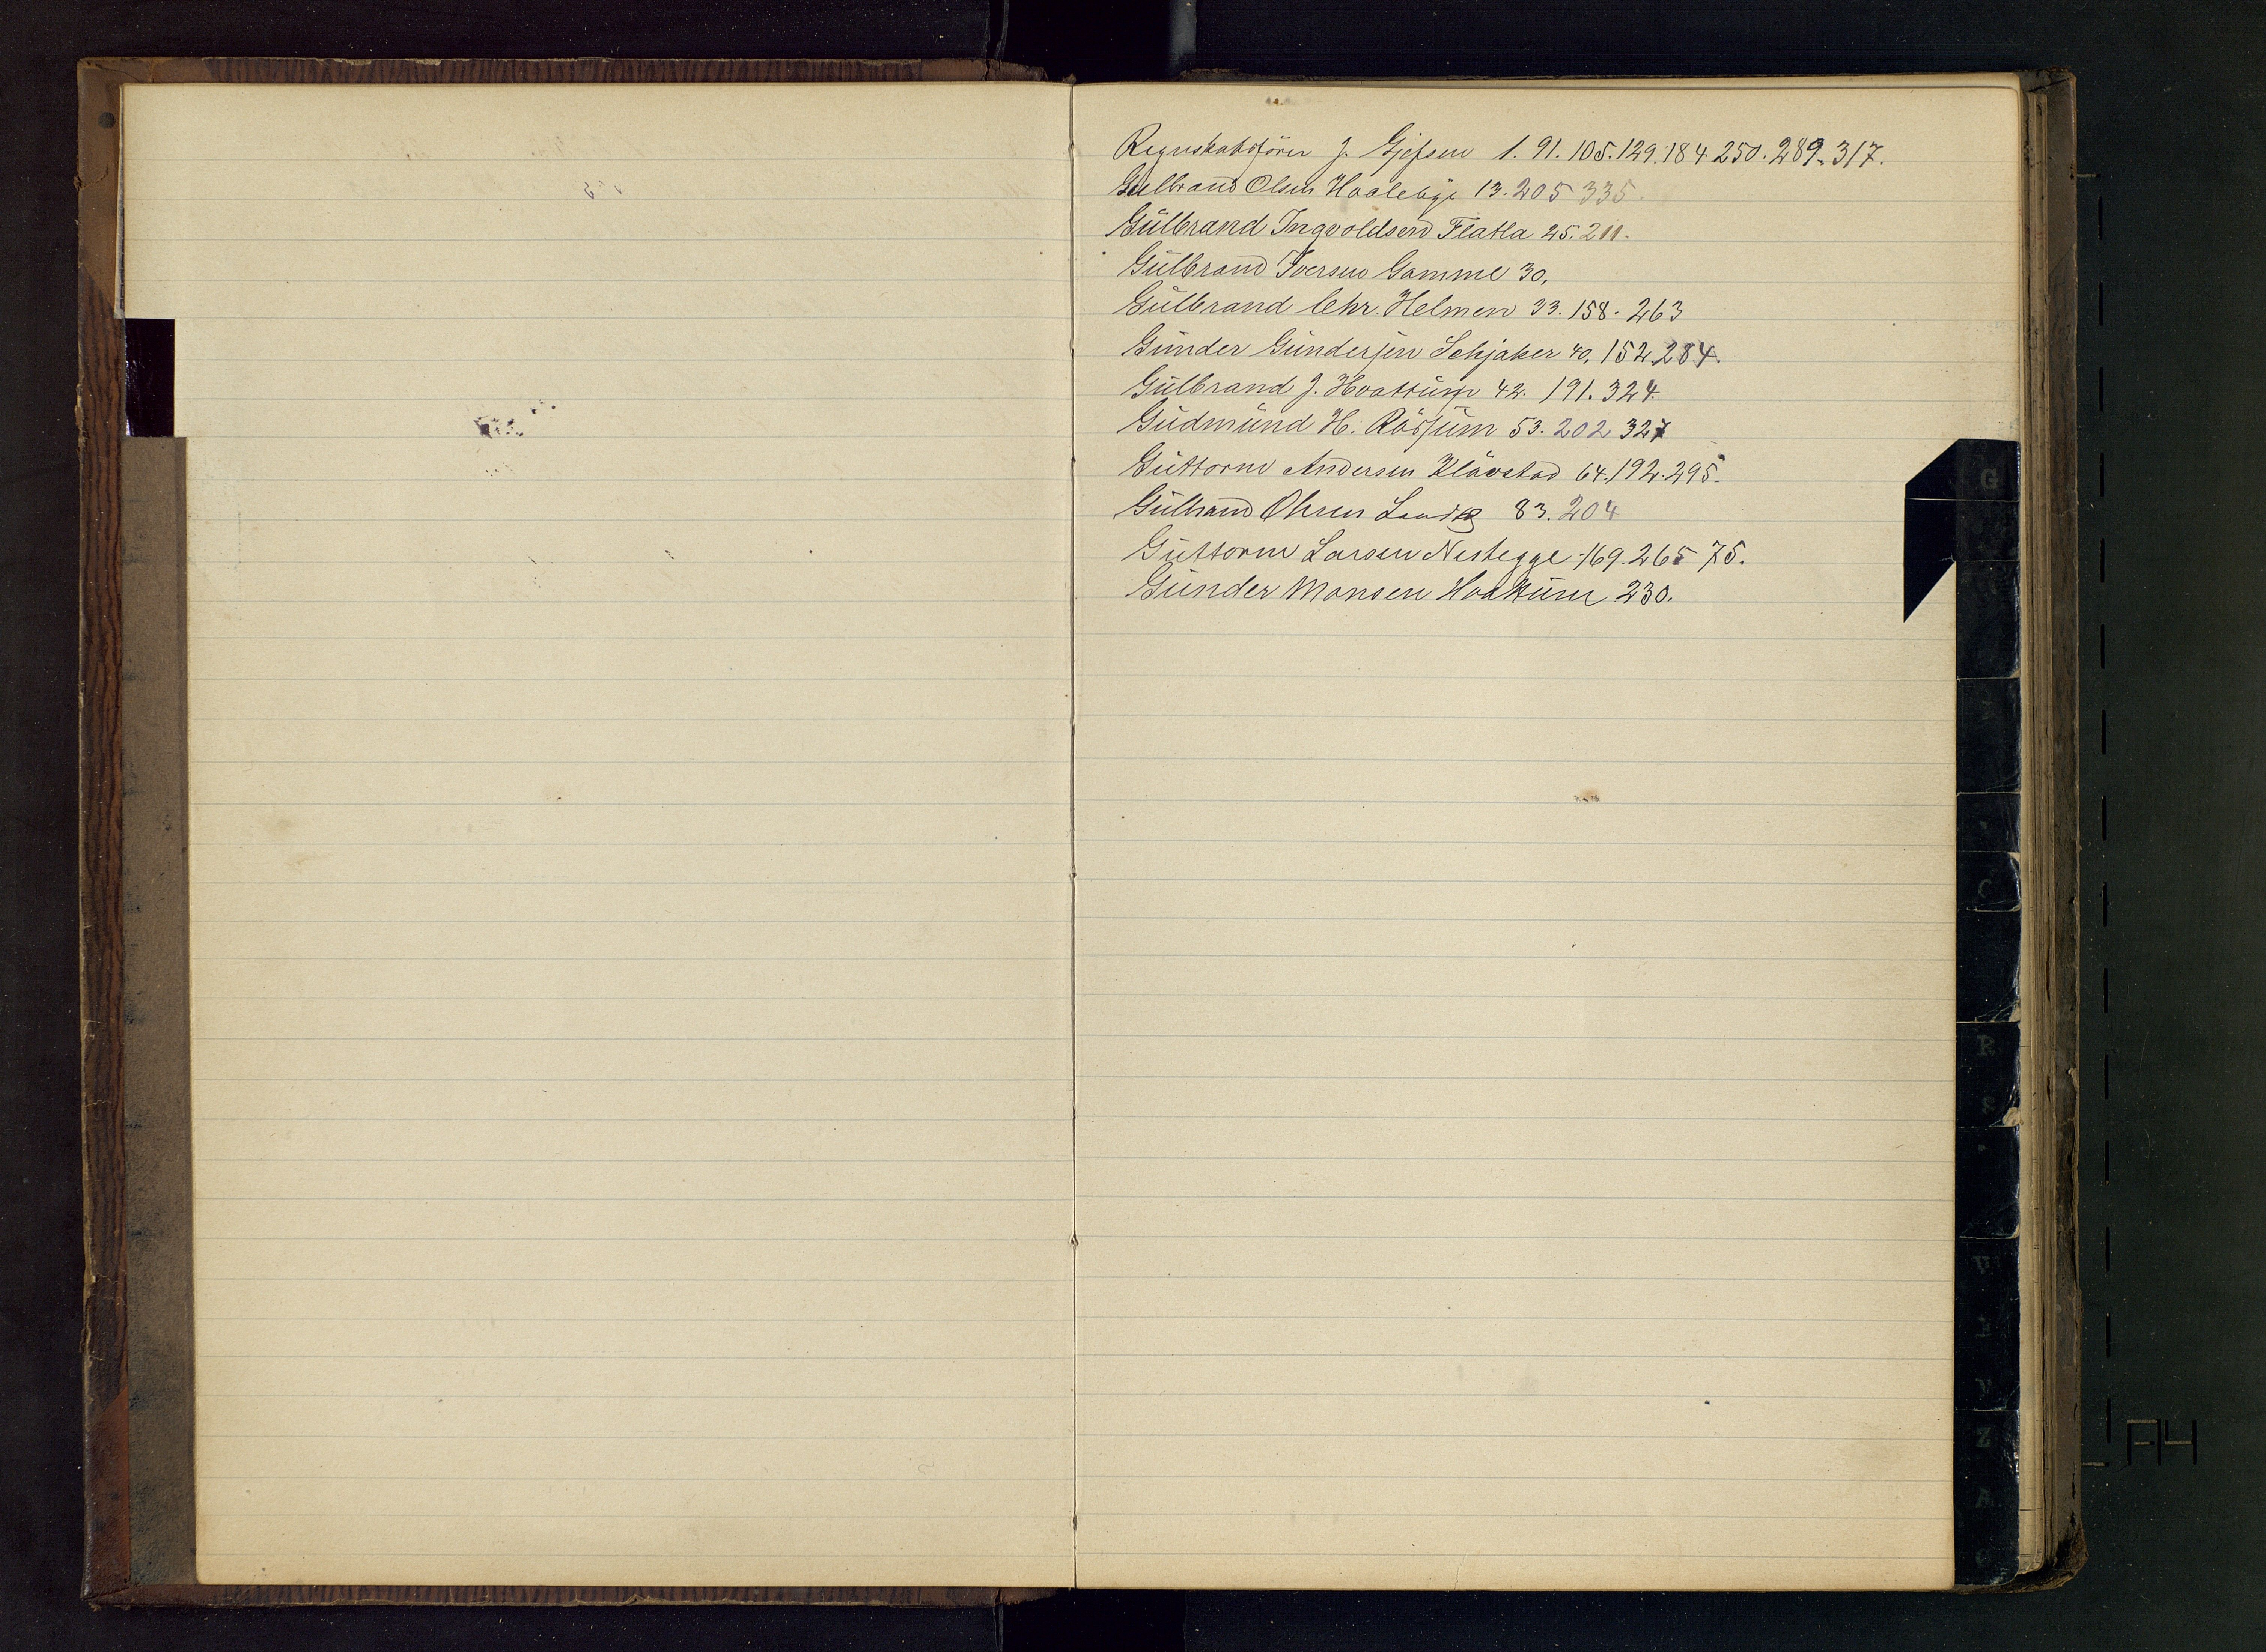 Regnskabsförer J. Gjefsen 1. 91. 105. 129. 184. 250. 289. 317.
Gulbrand Olsen Haalebye 13. 205 335.
Gülbrand Ingvoldsen Flatla 25. 211.
Gülbrand Iversen Gamme 30,
Gülbrand Chr. Helmen 33. 158. 263
Günder Gündersen Schjaker 40, 152 284.
Gülbrand J. Hvattüm 42. 191. 324.
Güdmünd H. Rösjüm 53. 202 327
Güttorm Andersen Klävstad 64. 192. 295.
Gülbrand Olsen 83. 204
Güttorm Larsen Nestegge 169. 265 75.
Günder Monsen Hvattüm 230.
G
C
R
Z